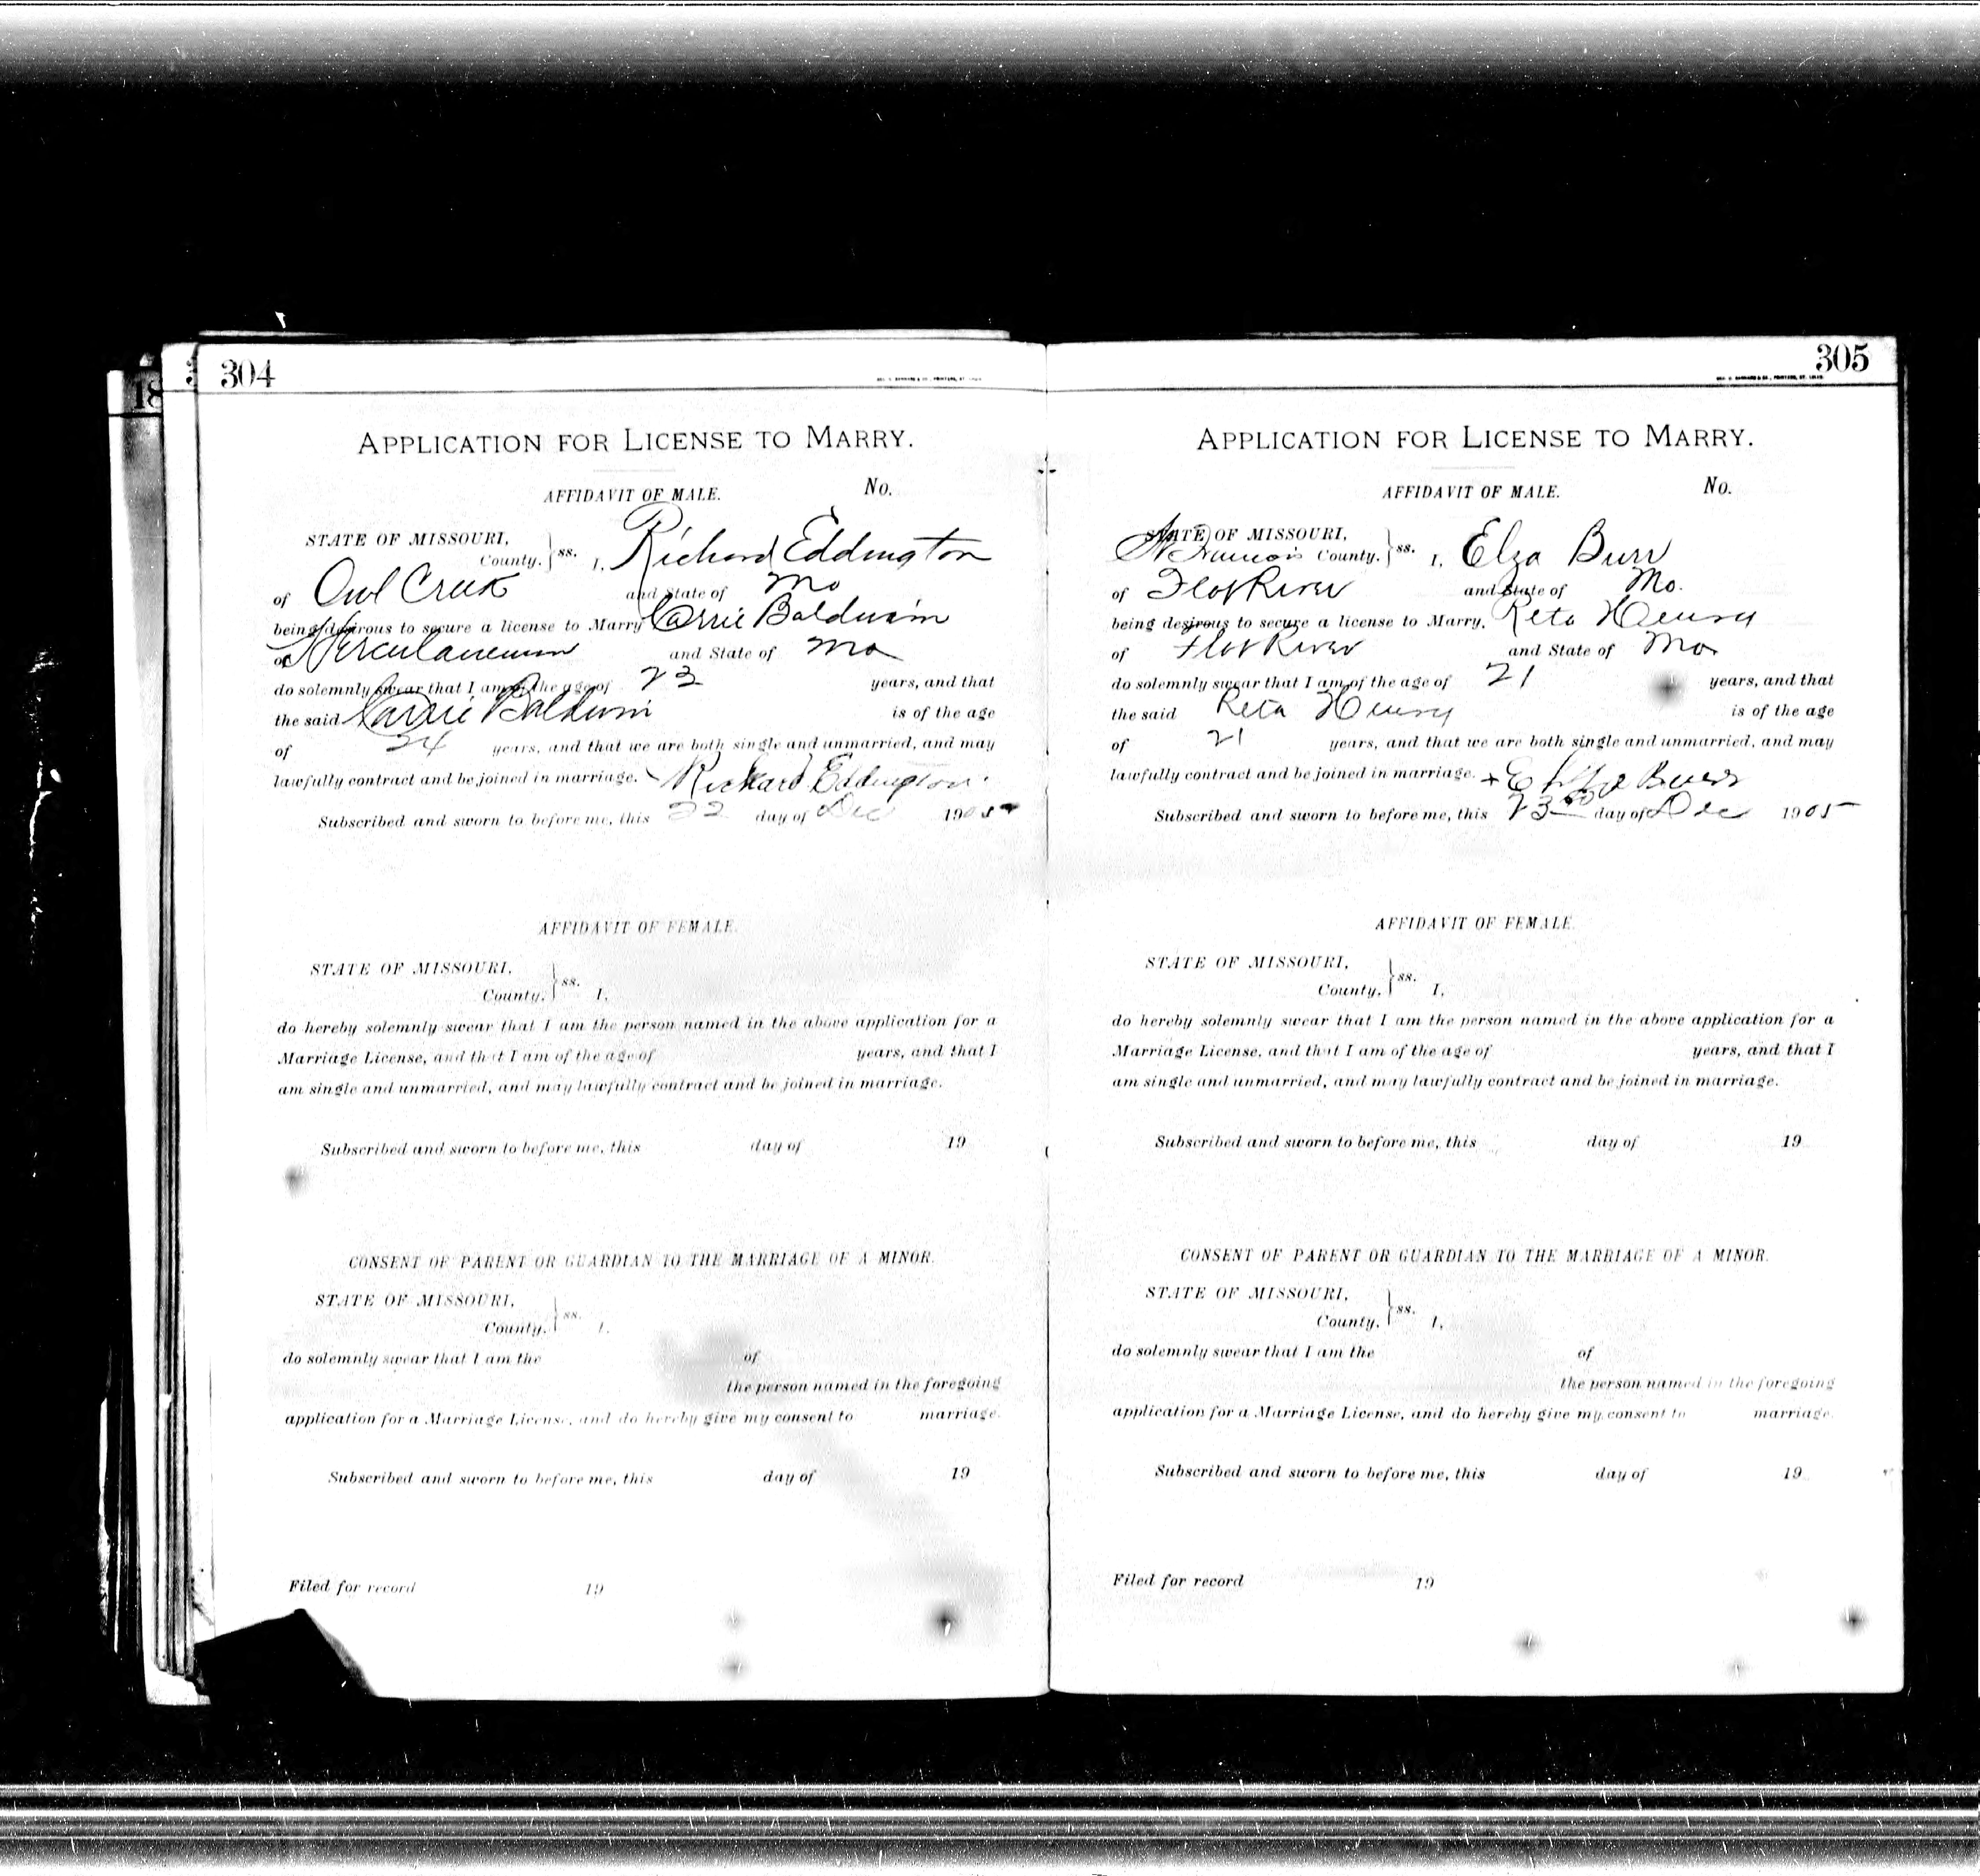 304
APPLICATION FOR LICENSE TO MARRY.
AFFIDAVIT OF MALE. No.
STATE OF MISSOURI,
County. } ss. I, Richard Eddington
of Owl Creek and State of Mo
being desirous to secure a license to Marry Carrie Baldwin
of Herculaneum and State of Mo
do solemnly swear that I am of the age of 23 years, and that
the said Carrie Baldwin is of the age
of 24 years, and that we are both single and unmarried, and may
lawfully contract and be joined in marriage. Richard Eddington
Subscribed and sworn to before me, this 22 day of Dec 1905
AFFIDAVIT OF FEMALE.
STATE OF MISSOURI,
County. } ss. I,
do hereby solemnly swear that I am the person named in the above application for a
Marriage License, and that I am of the age of years, and that I
am single and unmarried, and may lawfully contract and be joined in marriage.
Subscribed and sworn to before me, this day of 19
CONSENT OF PARENT OR GUARDIAN TO THE MARRIAGE OF A MINOR.
STATE OF MISSOURI,
County. } ss. I,
do solemnly swear that I am the of
the person named in the foregoing
application for a Marriage License, and do hereby give my consent to marriage.
Subscribed and sworn to before me, this day of 19
Filed for record 19
305
APPLICATION FOR LICENSE TO MARRY.
AFFIDAVIT OF MALE. No.
STATE OF MISSOURI,
St Francois County. } ss. I, Elza Burr
of Flat River and State of Mo.
being desirous to secure a license to Marry, Reta Henry
of Flat River and State of Mo
do solemnly swear that I am of the age of 21 years, and that
the said Reta Henry is of the age
of 21 years, and that we are both single and unmarried, and may
lawfully contract and be joined in marriage. x Burr
Subscribed and sworn to before me, this 23rd day of Dec 1905
AFFIDAVIT OF FEMALE.
STATE OF MISSOURI,
County. } ss. I,
do hereby solemnly swear that I am the person named in the above application for a
Marriage License, and that I am of the age of years, and that I
am single and unmarried, and may lawfully contract and be joined in marriage.
Subscribed and sworn to before me, this day of 19
CONSENT OF PARENT OR GUARDIAN TO THE MARRIAGE OF A MINOR.
STATE OF MISSOURI,
County. } ss. I,
do solemnly swear that I am the of
the person named in the foregoing
application for a Marriage License, and do hereby give my consent to marriage.
Subscribed and sworn to before me, this day of 19
Filed for record 19